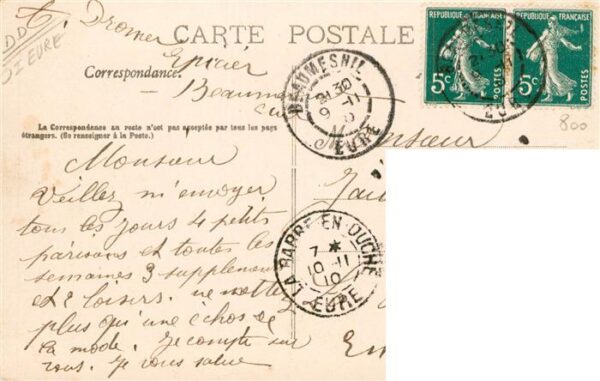 DD
27 EURE
Dromer
Epicier
Beaumesnil
CARTE POSTALE
Correspondance.
La Correspondance au recto n'est pas acceptée par tous les pays
étrangers. (Se renseigner à la Poste.)
BEAUMESNIL
21 30
9 -11
10
EURE
REPUBLIQUE FRANÇAISE
5c
POSTES
REPUBLIQUE FRANÇAISE
5c
POSTES
EURE
800
Monsieur
Monsieur
Veillez m'envoyer
tous les jours 4 petits
parisons et toutes les
semaines 3 supplement
et 2 loisirs. ne mettez
plus qu'une échos de
la mode. Je compte sur
vous. Je vous salue
LA BARRE-EN-OUCHE
7 *
10 -11
10
EURE